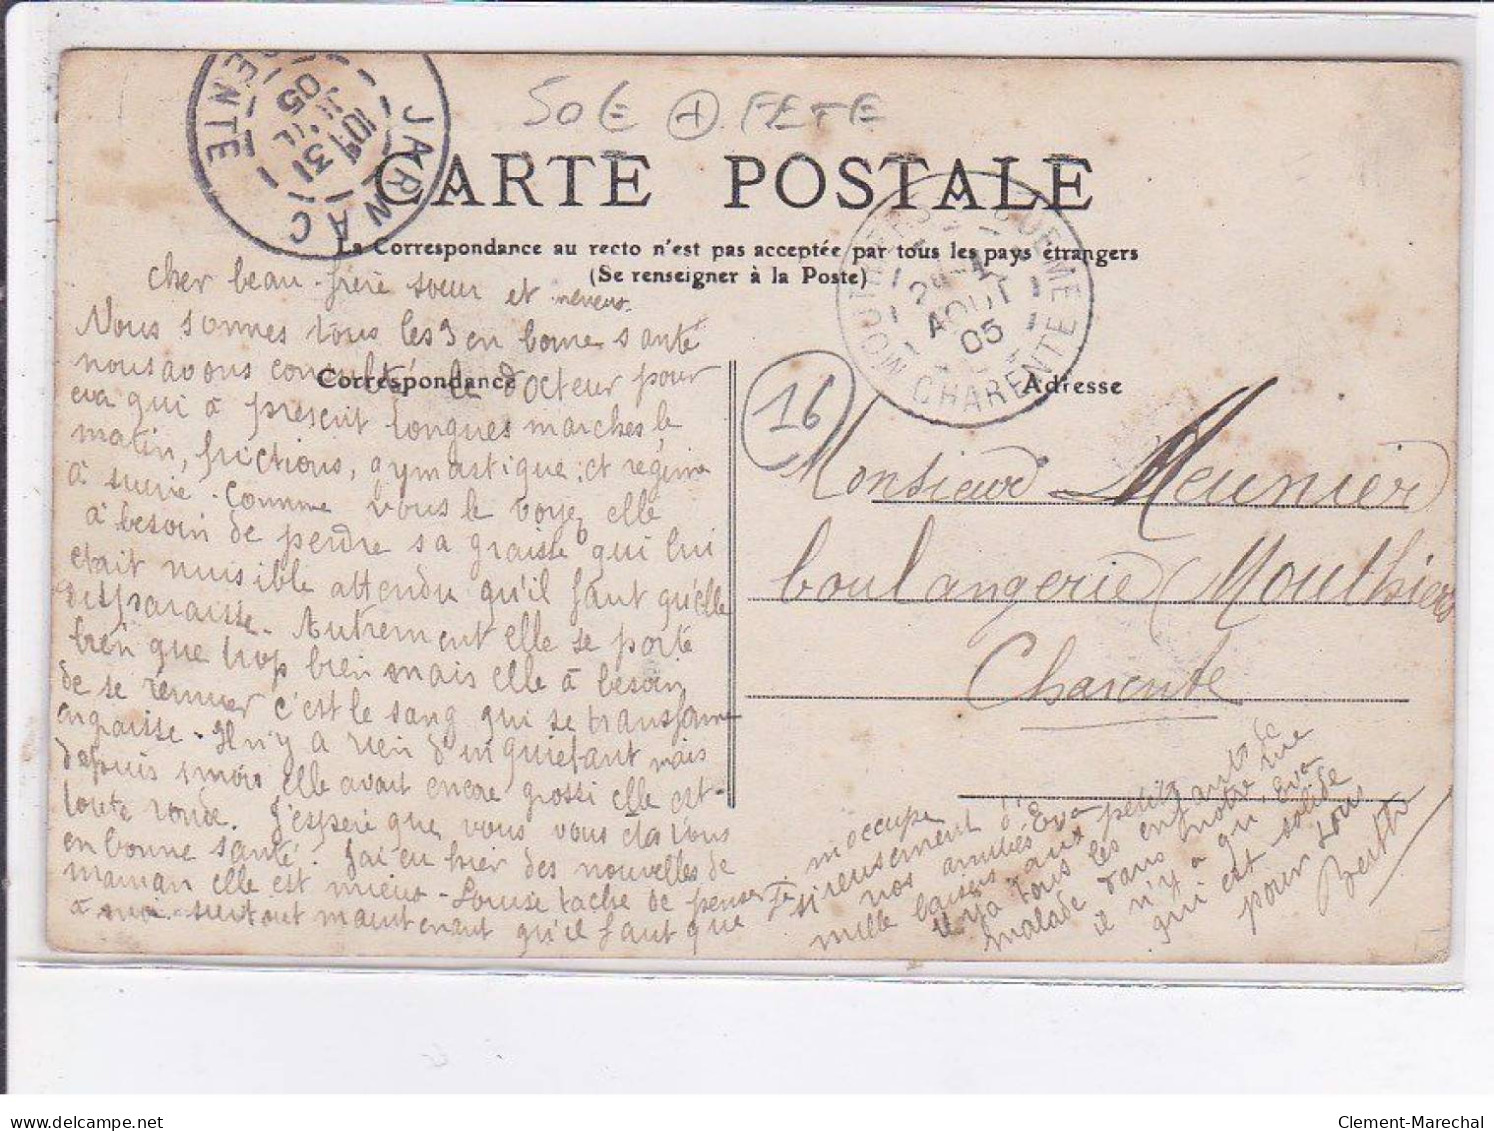 50 € + FETE
JARNAC
31 JUIL 05
CARTE POSTALE
La Correspondance au recto n'est pas acceptée par tous les pays étrangers
(Se renseigner à la Poste)
AOUT 05
CHARENTE
Correspondance
Adresse
16
Cher beau-frère sœur et neveux
Nous sommes tous les 3 en bonne santé
nous avons consulté le docteur pour
eva qui à prescrit longues marches le
matin, frictions, gymastique et régime
à suivre. Comme vous le voyez elle
à besoin de perdre sa graisse qui lui
était nuisible attendu qu'il faut qu'elle
disparaisse. Autrement elle se porte
bien que trop bien mais elle à besoin
de se remuer c'est le sang qui se transforme
en graisse. Il n'y a rien d'inquietant mais
depuis 1 mois elle avait encore grossi elle est
toute ronde. J'espère que vous vous êtes tous
en bonne santé. J'ai eu hier des nouvelles de
maman elle est mieux. Louise tache de penser
à moi surtout maintenant qu'il faut que je
m'occupe
sérieusement d'Eva
nos amitiés aux petits
mille baisers
il y a tous les enfants de
malade dans notre rue
il n'y a qu'Eva
qui est solide
pour tous
Berthe
Monsieur Meunier
boulangerie Mouthiers
Charente
Clement-Marechal
www.delcampe.net